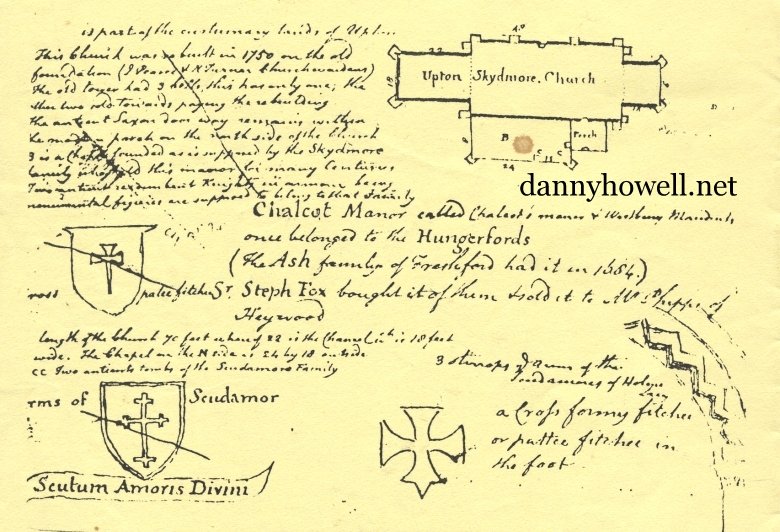 is part of the customary lands of Upton
This Church was rebuilt in 1750 on the old
foundation (J Pearce & R Turner Churchwardens)
The old tower had 3 bells, this has only one, the
other two sold towards paying the rebuilding
the antient Saxon door way remains within
the modern porch on the north side of the Church
B is a Chapel founded as is supposed by the Skydmore
family who held this manor for many Centuries
Two antient recumbent Knights in armour being
monumental figures are supposed to belong to that Family
Upton Skydmore Church
22
18
B
Porch
C C
24
dannyhowell.net
Chalcot Manor called Chalcot's manor &
once belonged to the Hungerfords
(The Ash family of Freshford had it in 1684.)
Sr. Steph Fox bought it of them & sold it to Mr. Phipps of
Heywood
patee fitchee
length of the Church 70 feet where of 22 is the Chancel is 18 feet
wide. The Chapel on the N side is 24 by 18 outside
CC Two antients tombs of the Scudamore Family
3 stirrops ye arms of the
Scudamores of Holm
Lacy
rms of Scudamor
a Cross formy fitchee
or pattee fitchee in
the foot
Scutum Amoris Divini